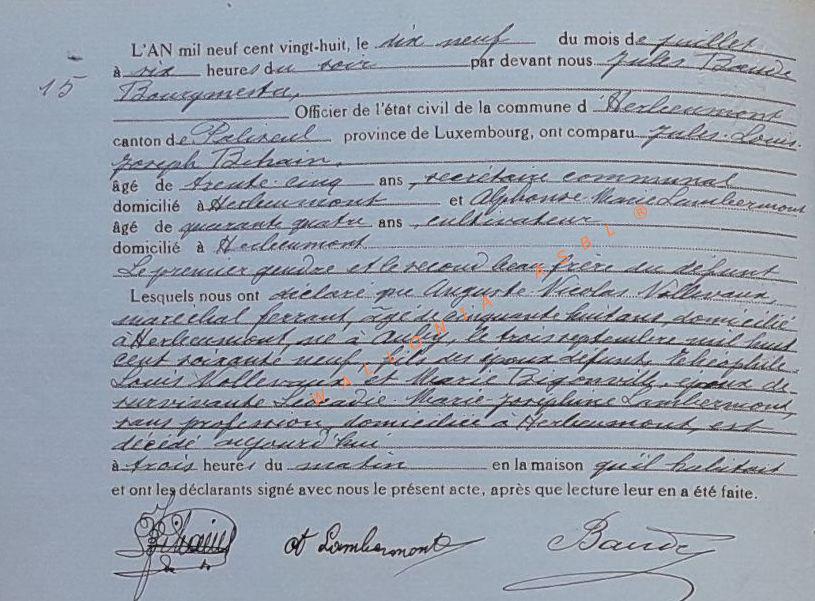 L'AN mil neuf cent vingt-huit, le dix neuf du mois de juillet
15
à six heures du soir par devant nous Jules Baude
Bourgmestre,
Officier de l'état civil de la commune d'Herbeumont
canton de Paliseul province de Luxembourg, ont comparu Jules-Louis-
Joseph Bihain,
âgé de trente-cinq ans, secrétaire communal
domicilié à Herbeumont et Alphonse-Marie Lambermont
âgé de quarante quatre ans, cultivateur
domicilié à Herbeumont
Le premier gendre et le second beau frère du défunt
Lesquels nous ont déclaré que Auguste Nicolas Nollevaux,
maréchal ferrant, âgé de cinquante huit ans, domicilié
à Herbeumont, né à Auby, le trois septembre mil huit
cent soixante neuf, fils des époux défunts, Théophile
Louis Nollevaux et Marie Bigonville, époux de
survivante Léocadie-Marie-Joséphine Lambermont,
sans profession, domiciliée à Herbeumont, est
décédé aujourd'hui
à trois heures du matin en la maison qu'il habitait
et ont les déclarants signé avec nous le présent acte, après que lecture leur en a été faite.
Bihain at Lambermont Baude
WALLONIA ASBL ®